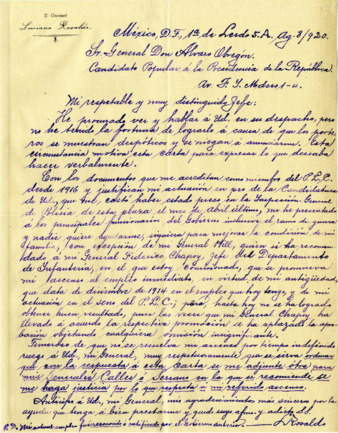 T. Coronel
Luciano Rosaldo.
México, D.F., 1a de Lerdo 5.A, Ag. 3/920.
Sr. General Don Alvaro Obregón,
Candidato Popular á la Presidencia de la República
Av. F. I. Madero #1-4.
Mi respetable y muy distinguido Jefe:
He procurado ver y hablar á Ud. en su despacho, pero
no he tenido la fortuna de lograrlo á causa de que los porte-
ros se muestran despóticos y se niegan á anunciarme. Esta
circunstancia motiva esta carta para expresar lo que deseaba
hacer verbalmente:
Con los documentos que me acreditan como miembro del P.L.C.
desde 1916 y justifican mi actuación en pro de la Candidatura
de Ud., que, ent, causó haber estado preso en la Inspección General
de Policía de esta plaza el mes de abril último, me he presentado
á los principales funcionarios del Gobierno interino del ramo de guerra
y nadie quiere ayudarme, siquiera para mejorar la condición de mi
familia; con excepción de mi General Hill, quien si ha recomen-
dado á mi General Federico Chapoy, Jefe del Departamento
de Infantería, en el que estoy comisionado, que se promueva
mi ascenso al empleo inmediato, en virtud de mi antigüedad,
que data de diciembre de 1914 en el empleo que hoy tengo, y de mi
actuación en el seno del P.L.C.; pero, hasta hoy no se ha logrado
obtener buen resultado, pues las veces que mi General Chapoy ha
llevado al acuerdo la respectiva promoción se ha aplazado la apro-
bación objetando cualquiera omisión insignificante.
Temeroso de que no se resuelva mi ascenso por tiempo indefinido
ruego á Ud., mi General, muy respetuosamente que se sirva ordenar
que con la respuesta á esta carta se me adjunte otra para
mis Generales Calles ó Serrano en la que si recomiende se
me haga justicia por lo que respecta á mi referido ascenso.
Anticipo á Ud., mi General, mis agradecimientos más sinceros por la
ayuda que tenga á bien prestarme y quedo suyo afmo. y adicto S.S.
P.D. Mi actual empleo fué reconocido y ratificado por el Gobierno anterior.
L. Rosaldo